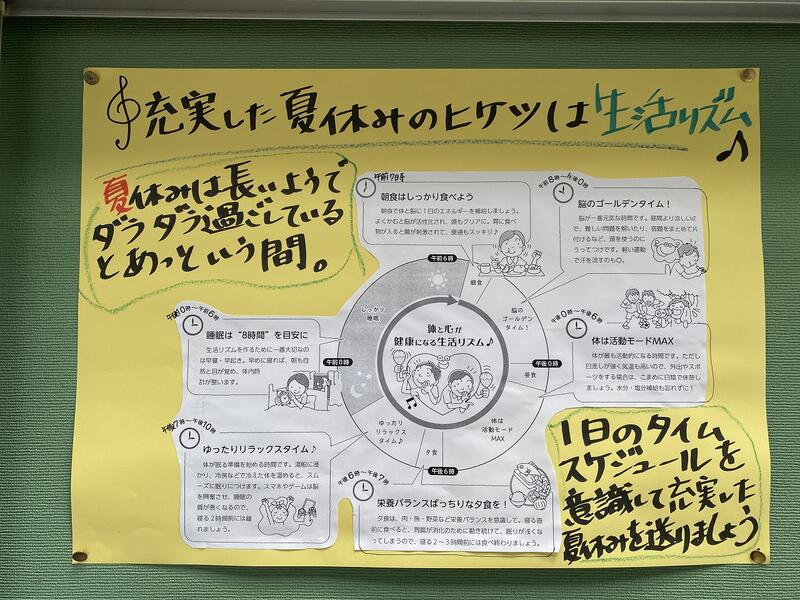 充実した夏休みのヒケツは生活リズム♪
夏休みは長いようで
ダラダラ過ごしている
とあっという間。
午前7時
朝食はしっかり食べよう
朝食で体と脳に1日のエネルギーを補給しましょう。
よくかむと脳が活性化され、頭もクリアに。胃に食べ
物が入ると腸が刺激されて、便通もスッキリ♪
午前8時〜午後0時
脳のゴールデンタイム!
脳が一番元気な時間です。昼間より涼しいの
で、難しい問題を解いたり、宿題をまとめて片
付けるなど、頭を使うのに
うってつけです。軽い運動
で汗を流すのも◎。
午後0時〜午後6時
体は活動モードMAX
体が最も活動的になる時間です。ただし
日差しが強く気温も高いので、外出やスポ
ーツをする場合は、こまめに日陰で休憩し
ましょう。水分・塩分補給も忘れずに!
午後6時〜午後7時
栄養バランスばっちりな夕食を!
夕食は、肉・魚・野菜など栄養バランスを意識して。寝る直
前に食べると、胃腸が消化のために動き続けて、眠りが浅くなっ
てしまうので、寝る2〜3時間前には食べ終わりましょう。
午後7時〜午後10時
ゆったりリラックスタイム♪
体が眠る準備を始める時間です。湯船に浸
かり、冷房などで冷えた体を温めると、スム
ーズに眠りにつけます。スマホやゲームは脳
を興奮させ、睡眠の
質が悪くなるので、
寝る2時間前には離
れましょう。
午後10時〜午前6時
睡眠は“8時間”を目安に
生活リズムを作るために一番大切なの
は早寝・早起き。早めに寝れば、朝も自
然と目が覚め、体内時
計が整います。
午前6時
朝食
脳の
ゴールデン
タイム!
午後0時
昼食
体は
活動モード
MAX
午後6時
夕食
ゆったり
リラックス
タイム♪
午前0時
しっかり
睡眠
体と心が
健康になる生活リズム♪
1日のタイム
スケジュールを
意識して充実した
夏休みを送りましょう